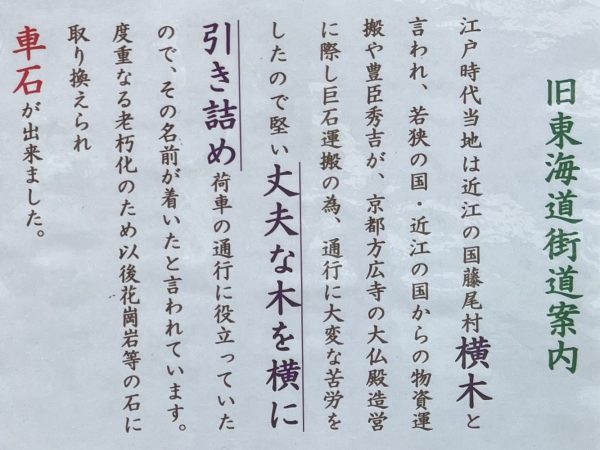 旧東海道街道案内
江戸時代当地は近江の国藤尾村横木と
言われ、若狭の国・近江の国からの物資運
搬や豊臣秀吉が、京都方広寺の大仏殿造営
に際し巨石運搬の為、通行に大変な苦労を
したので堅い丈夫な木を横に
引き詰め荷車の通行に役立っていた
ので、その名前が着いたと言われています。
度重なる老朽化のため以後花崗岩等の石に
取り換えられ
車石が出来ました。